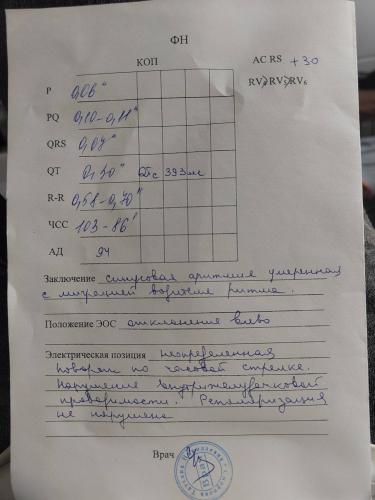 ФН
КОП
AC RS +30
RV₄>RV₅>RV₆
P 0,06"
PQ 0,10-0,11"
QRS 0,07"
QT 0,30" QTc 393 мс
R-R 0,58-0,70"
ЧСС 103-86'
АД 94
Заключение синусовая аритмия умеренная
с миграцией водителя ритма.
Положение ЭОС отклонение влево
Электрическая позиция неопределенная
Поворот по часовой стрелке.
Нарушение внутрижелудочковой
проводимости. Реполяризация
не нарушена
Врач